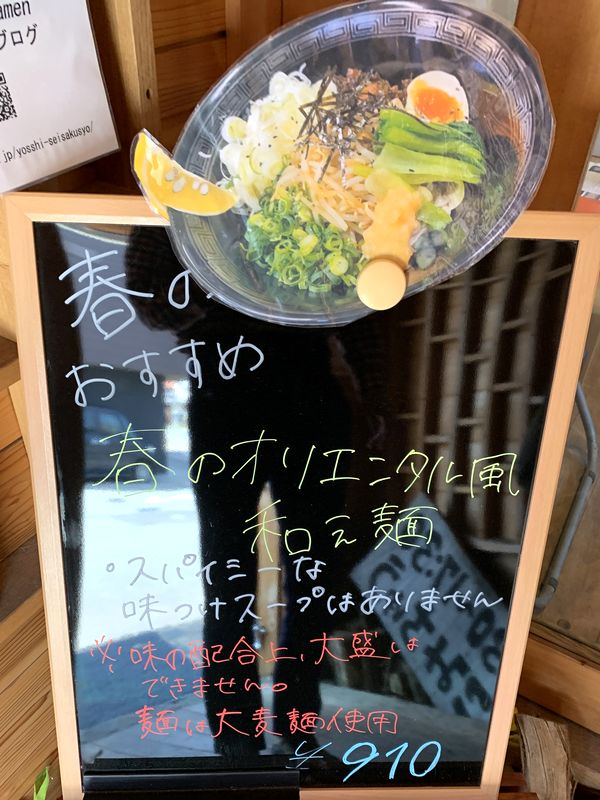 amen
ブログ
jp/yosshi-seisakusyo/
春の
おすすめ
春のオリエンタル風
和え麺
・スパイミーな
味つけスープはありません
※味の配合上、大盛は
できません。
麺は大麦麺使用
￥910